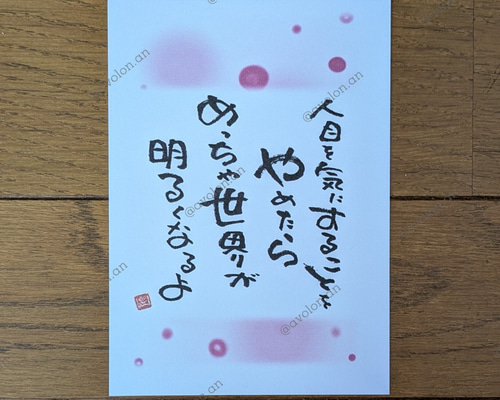 人目を気にすることを
やめたら
めっちゃ世界が
明るくなるよ
@avolon.an
@avolon.an
@avolon.an
@avolon.an
@avolon.an
@avolon.an